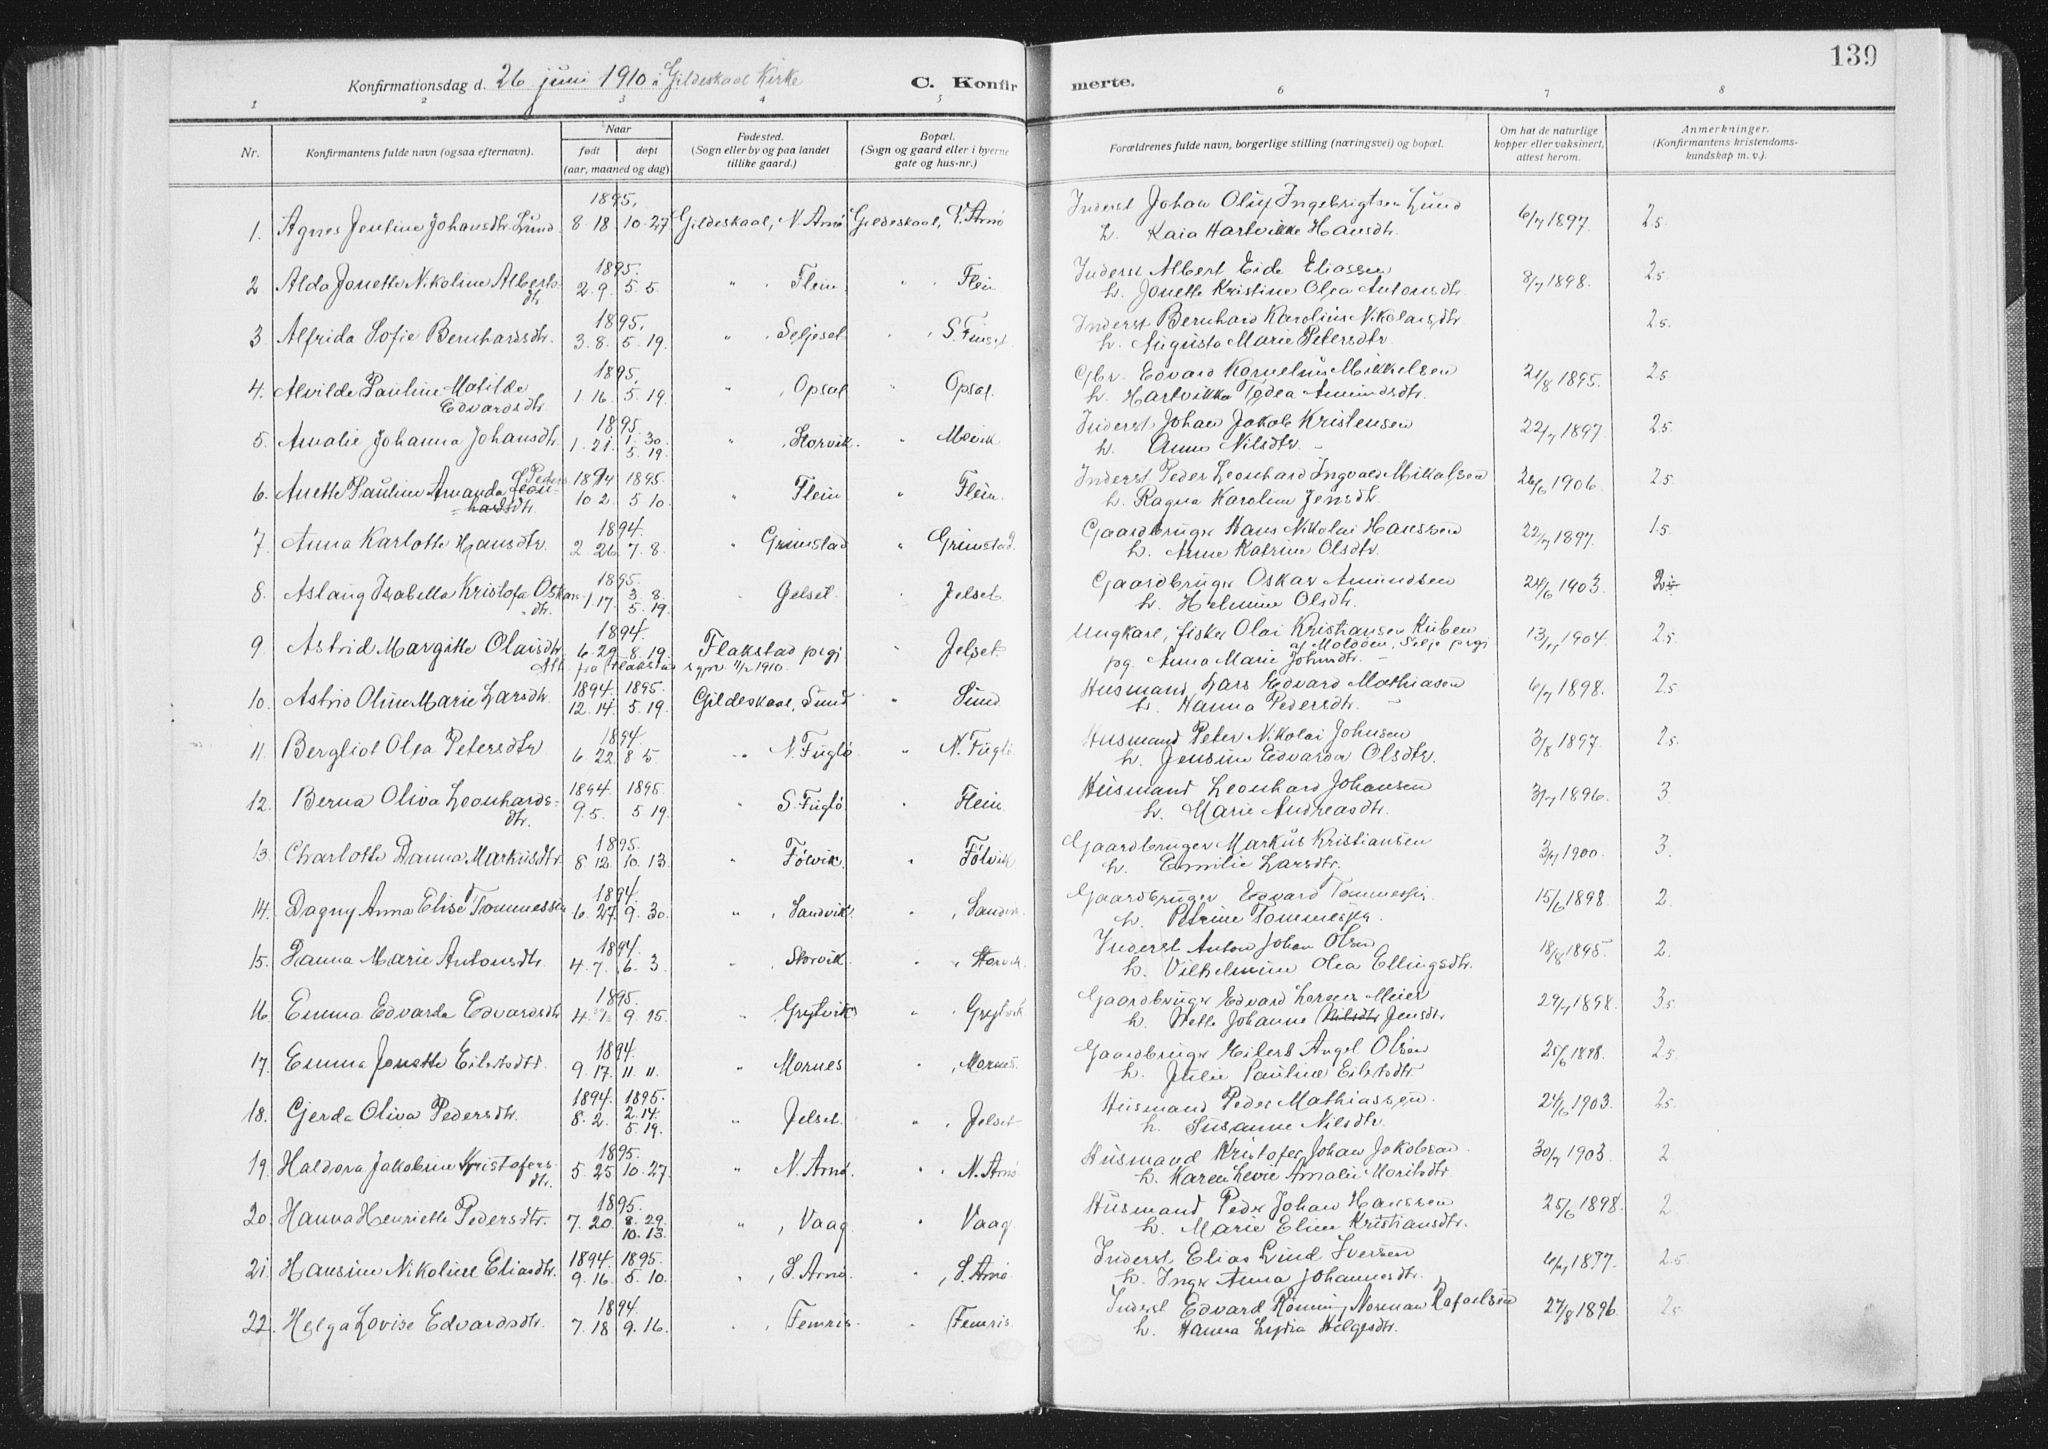 139
Konfirmationsdag d. 26 juni 1910 i Gildeskaal Kirke C. Konfirmerte.
1 2 3 4 5 6 7 8
Nr. Konfirmantens fulde navn (ogsaa efternavn). Naar født døpt (aar, maaned og dag) Fødested. (Sogn eller by og paa landet tillike gaard.) Bopæl. (Sogn og gaard eller i byerne gate og hus-nr.) Forældrenes fulde navn, borgerlige stilling (næringsvei) og bopæl. Om hat de naturlige kopper eller vaksinert, attest herom. Anmerkninger. (Konfirmantens kristendomskundskap m. v.).
1895.
1. Agnes Jentine Johansdtr. Lund 8 18 10.27 Gildeskaal, N. Arnø Gildeskaal, N. Arnø Inderst Johan Oluf Ingebrigtsen Lund 6/7 1897. 2.5
h. Kaia Hartvikke Hansdtr.
1895.
2 Alda Jonette Nikoline Alberts-dtr. 2.9. 5.5 " Flein " Flein Inderst Albert Eide Eliassen 8/7 1898. 2.5
h. Jonette Kristine Olea Antonsdtr.
1895.
3 Alfrida Sofie Bernhardsdtr. 3.8. 5.19. " Seljeset " S. Finset Inderst Bernhard Karolius Nikolaisdtr 2.5.
h. Augusta Marie Petersdtr.
1895.
4. Alvilde Pauline Matilde Edvardsdtr. 1.16. 5.19. " Opsal " Opsal. Gbr. Edvard Kornelius Mikkelsen 21/8 1895. 2.5
h. Hartvikka Todea Amundsdtr.
1895.
5. Amalie Johanna Johansdtr. 1.21. 1.30. 5.19. " Storvik " Mevik Inderst Johan Jakob Kristensen 22/7 1897. 2.5.
h. Anna Nilsdtr. -
1894 1895
6. Anette Pauline Amanda Peders Leonhardsdtr. 10 2. 5 10. " Flein " Flein. Inderst Peder Leonhard Ingvald Mikalsen 26/6 1906. 2.5
h. Ragna Karoline Jensdtr.
1894.
7. Anna Karlotte Hansdtr. 2.26. 7.8. " Grimstad " Grimstad. Gaardbruger Hans Nikolai Hanssen 22/7 1897. 1.5
h. Anne Katrine Olsdtr.
1895.
8. Aslaug Isabella Kristofa Oskarsdtr. 1.17. 3.8. 5.19. " Gelset. " Jelset. Gaardbruger Oskar Amundsen 24/6 1903. 2
h. Helmine Olsdtr.
1894.
9 Astrid Margitte Olaisdtr. 6.29. 8.19. Flakstad prgj " Jelset. Ungkarl, fisker Olai Kristiansen Kuben 13/4 1904. 2.5
Att. fra Flakstad sgpr. 11/2 1910. af Moldøen, Selje prgj
pg. Anna Marie Johnsdtr. -
1894. 1895.
10. Astrid Oline Marie Larsdtr. 12.14. 5.19. Gildeskaal, Sund " Sund Husmand Lars Edvard Mathiasen 6/7 1898. 2.5
h. Hanna Pedersdtr. -
1894.
11. Bergliot Olea Petersdtr 6 22. 8 5. " N. Fuglø " N. Fuglø Husmand Peter Nikolai Johnsen 3/8 1897. 2.5.
h. Jensine Edvarda Olsdtr.
1894. 1895.
12. Berna Oliva Leonhards-dtr. 9.5. 5.19. " S. Fuglø " Flein. Husmand Leonhard Johansen 3/7 1896. 3
h. Marie Andreasdtr.
1895.
13. Charlotte Danna Markusdtr. 8 12. 10. 13. " Følvik. " Følvik Gaardbruger Markus Kristiansen 3/7 1900. 3.
h. Emilie Larsdtr.
1894.
14. Dagny Anna Elise Tommessen 6.27. 9. 30. " Sandvik. " Sandvik Gaardbruger Edvard Tommessen 15/6 1898. 2.
h. Petrine Tommesen.
1894.
15. Danna Marie Antonsdtr. 4.7. 6. 3. " Storvik. " Storvik. Inderst Anton Johan Olsen 18/8 1895. 2.
h. Vilhelmine Olea Ellingsdtr.
1895.
16. Emma Edvarda Edvardsdtr. 9. 15. " Grytvik " Grytvik Gaardbruger Edvard Lorens Meier 29/7 1898. 3.5
h. Mette Johanne Nilsdtr Jensdtr
1894.
17. Emma Jonette Eilertsdtr. 9.17. 11 11. " Mornes " Mornes. Gaardbruger Eilert Angel Olsen 25/6 1898. 2.5
h. Julie Pauline Eilertsdtr.
1894. 1895.
18. Gjerda Oliva Pedersdtr. 8.2. 2.14. 5.19. " Jelset. " Jelset Husmand Peder Mathiassen. 24/6 1903. 2.5
h. Susanne Nilsdtr.
1895.
19. Haldora Jakobine Kristofersdtr. 5.25. 10.27. " N. Arnø. " N. Arnø Husmand Kristofer Johan Jakobsen 30/7 1903. 2
h. Karen Levie Amalie Moritsdtr.
1895.
20. Hanna Henriette Pedersdtr. 7.20. 8.29. 10.13. " Vaag " Vaag. Husmand Peder Johan Hanssen 25/6 1898. 2
h. Marie Eline Kristiansdtr.
1894. 1895.
21. Hansine Nikoline Eliasdtr. 9.16. 5.10. " S. Arnø. " S. Arnø. Inderst Elias Lind Iversen 6/7 1897. 2.5
h. Inger Anna Johannesdtr.
1894.
22. Helga Lovise Edvardsdtr. 7.18. 9.16. " Femris. " Femris. Inderst Edvard Rønning Norman Rafaelsen 27/8 1896. 2.5
h. Hanna Lydia Helgesdtr.